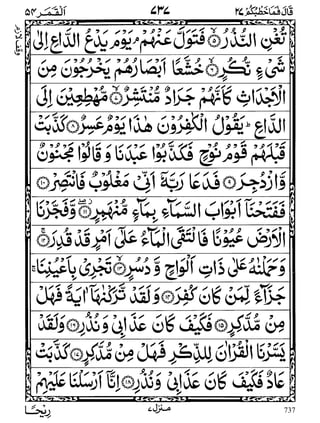 قَالَ فَمَا خَطْبُكُمْ ٢٧ ٧٣٧ اَلْقَمَر ٥٤
تُغْنِ النُّذُرُ ۙ﴿۵﴾ فَتَوَلَّ عَنْهُمْ ۘ يَوْمَ يَدْعُ الدَّاعِ اِلٰى
شَيْءٍ نُّكُرٍ ۙ﴿۶﴾ خُشَّعًا اَبْصَارُهُمْ يَخْرُجُوْنَ مِنَ
الْاَجْدَاثِ كَاَنَّهُمْ جَرَادٌ مُّنْتَشِرٌ ۙ﴿۷﴾ مُّهْطِعِيْنَ اِلَى
الدَّاعِ ؕ يَقُوْلُ الْكٰفِرُوْنَ هٰذَا يَوْمٌ عَسِرٌ ﴿۸﴾ كَذَّبَتْ
قَبْلَهُمْ قَوْمُ نُوْحٍ فَكَذَّبُوْا عَبْدَنَا وَ قَالُوْا مَجْنُوْنٌ
وَّازْدُجِرَ ﴿۹﴾ فَدَعَا رَبَّهٗۤ اَنِّيْ مَغْلُوْبٌ فَانْتَصِرْ ﴿۱۰﴾
فَفَتَحْنَاۤ اَبْوَابَ السَّمَآءِ بِمَآءٍ مُّنْهَمِرٍ ۖ﴿۱۱﴾ وَّفَجَّرْنَا
الْاَرْضَ عُيُوْنًا فَالْتَقَى الْمَآءُ عَلٰۤى اَمْرٍ قَدْ قُدِرَ ۚ﴿۱۲﴾
وَحَمَلْنٰهُ عَلٰى ذَاتِ اَلْوَاحٍ وَّ دُسُرٍ ۙ﴿۱۳﴾ تَجْرِيْ بِاَعْيُنِنَا ۚ
جَزَآءً لِّمَنْ كَانَ كُفِرَ ﴿۱۴﴾ وَ لَقَدْ تَّرَكْنٰهَاۤ اٰيَةً فَهَلْ
مِنْ مُّدَّكِرٍ ﴿۱۵﴾ فَكَيْفَ كَانَ عَذَابِيْ وَ نُذُرِ ﴿۱۶﴾ وَلَقَدْ
يَسَّرْنَا الْقُرْاٰنَ لِلذِّكْرِ فَهَلْ مِنْ مُّدَّكِرٍ ﴿۱۷﴾ كَذَّبَتْ
عَادٌ فَكَيْفَ كَانَ عَذَابِيْ وَ نُذُرِ ﴿۱۸﴾ اِنَّاۤ اَرْسَلْنَا عَلَيْهِمْ
رِيْحًا
منزل ٧
737